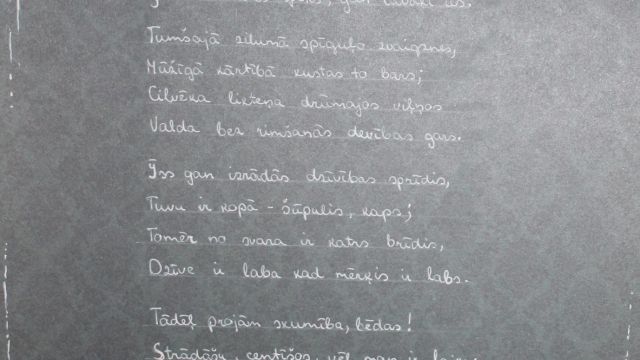 gan labāki ūs.
Tumšajā zilumā spīguļo zvaigznes,
Mūžīgā kārtībā kustas to bars;
Cilvēka likteņa drūmajos viļņos
Valda bez rimšanās devības gars.
Īss gan izrādās dzīvības sprīdis,
Tuvu ir kopā - šūpulis, kaps;
Tomēr no svara ir katrs brīdis,
Dzīve ir laba kad mērķis ir labs.
Tādēļ projām skumība, bēdas!
Strādāšu, centīšos, vēl man ir